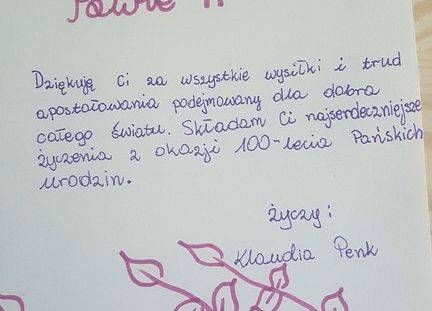 Dziękuję Ci za wszystkie wysiłki i trud
apostołowania podejmowany dla dobra
całego świata. Składam Ci najserdeczniejsze
życzenia z okazji 100-lecia Pańskich
urodzin.
życzy:
Klaudia Penk